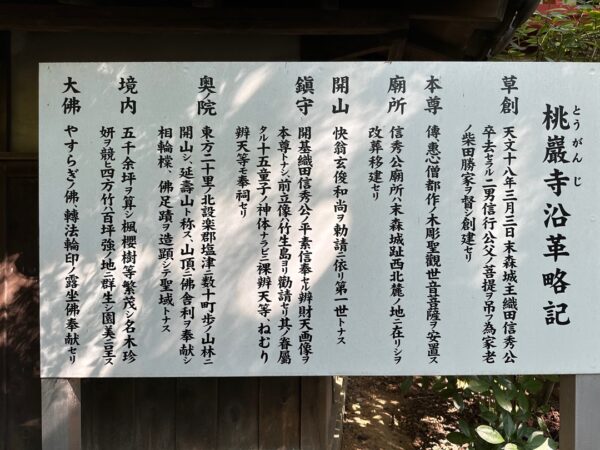 桃巖寺沿革略記
とうがんじ
草創
天文十八年三月三日末森城主織田信秀公
卒去セラル二男信行公父ノ菩提ヲ吊フ為家老
ノ柴田勝家ヲ督シ創建セリ
本尊
傳恵心僧都作ノ木彫聖観世音菩薩ヲ安置ス
廟所
信秀公廟所ハ末森城趾西北麓ノ地ニ在リシヲ
改葬移建セリ
開山
快翁玄俊和尚ヲ勅請ニ依リ第一世トナス
鎮守
開基織田信秀公ノ平素信奉セル辨財天画像ヲ
本尊トナシ、前立像ハ竹生島ヨリ勧請セリ其ノ眷属
タル十五童子ノ神体ナラビニ裸辨天等、ねむり
辨天等モ奉祠セリ
奥ノ院
東方二十里ノ北設楽郡塩津ニ数十町歩ノ山林ニ
開山シ、延壽山ト称ス、山頂ニ佛舎利ヲ奉献シ
相輪樘、佛足蹟ヲ造顕シテ聖域トナス
境内
五千余坪ヲ算シ楓櫻樹等繁茂シ名木珍
妍ヲ競ヒ四方竹ハ百坪強ノ地ニ群生シ園美ニ呈ス
大佛
やすらぎノ佛、轉法輪印ノ露坐佛奉献セリ